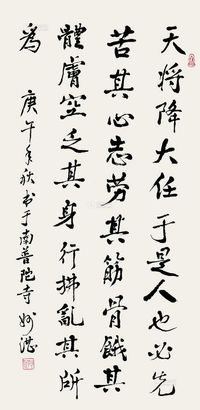 天将降大任于是人也必先
苦其心志劳其筋骨餓其
體膚空乏其身行拂亂其所
爲
庚午年秋书于南普陀寺 妙湛